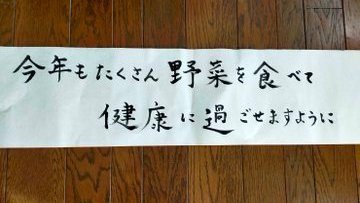 今年もたくさん野菜を食べて
健康に過ごせますように